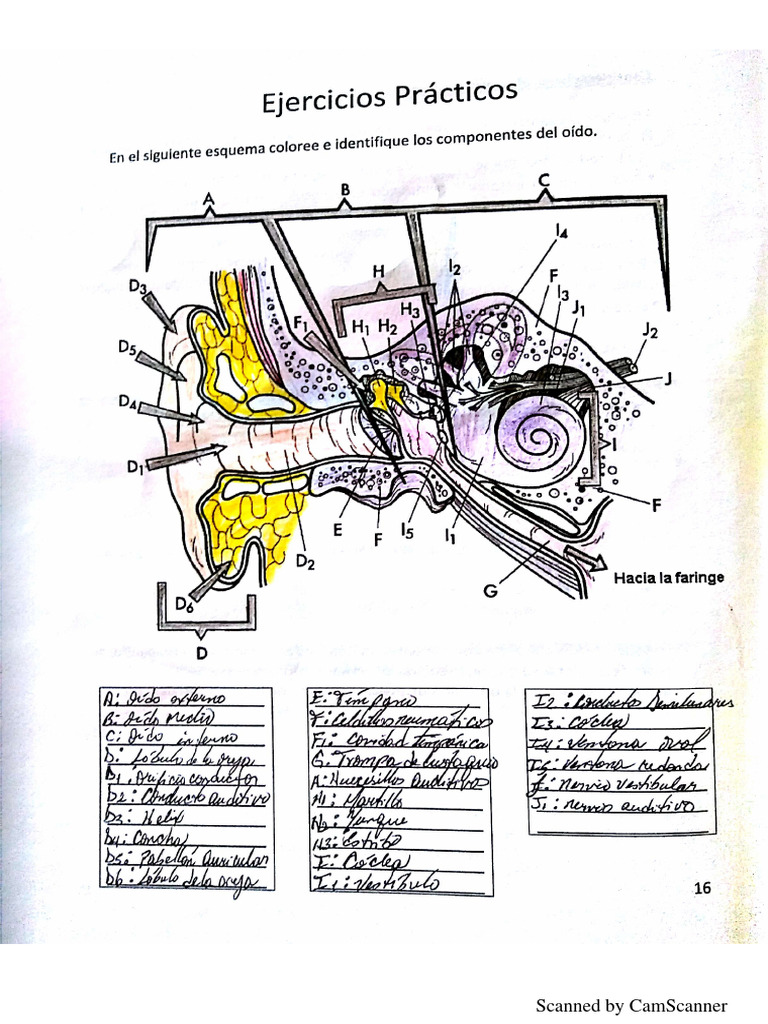 Ejercicios Prácticos
En el siguiente esquema coloree e identifique los componentes del oído.
A
B
C
I4
D3
H
I2
F
I3
J1
F1
H1
H2
H3
J2
D5
J
D4
I
D1
F
E
F
I5
I1
D2
G
Hacia la faringe
D6
D
A: Oído externo
B: Oído Medio
C: Oído interno
D: Lóbulo de la oreja
D1: Orificio conductor
D2: Conducto auditivo
D3: Helix
D4: Concha
D5: Pabellón auricular
D6: Lóbulo de la oreja
E: Tímpano
F: Celdillas neumáticas
F1: cavidad timpánica
G: Trompa de Eustaquio
A: Huecesillos auditivos
H1: Martillo
H2: Yunque
H3: Estribo
I: Cóclea
I1: Vestíbulo
I2: Conductos Semilunares
I3: Cóclea
I4: ventana oval
I5: ventana redonda
J: nervio vestibular
J1: nervio auditivo
16
Scanned by CamScanner